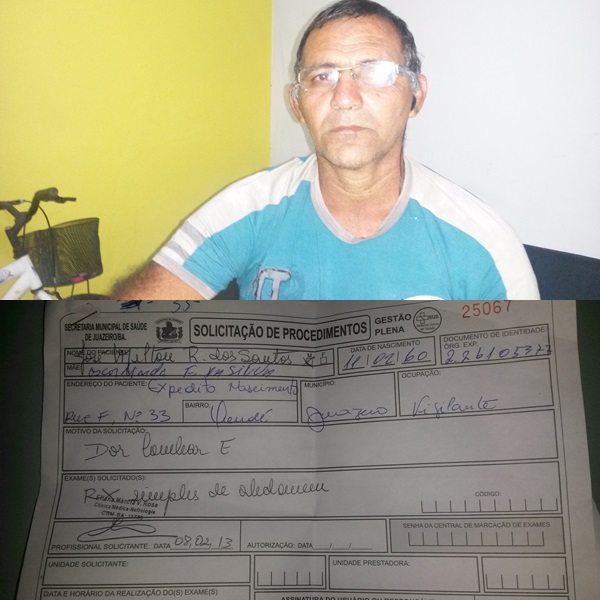 25067
SECRETARIA MUNICIPAL DE SAÚDE
DE JUAZEIRO/BA.
SOLICITAÇÃO DE PROCEDIMENTOS
GESTÃO
PLENA
NOME DO PACIENTE:
José Milton R. dos Santos
DATA DE NASCIMENTO
11/02/60
DOCUMENTO DE IDENTIDADE
ORG. EXP.
MÃE:
ENDEREÇO DO PACIENTE: Expedito Nascimento
Rua F, Nº 33
BAIRRO:
MUNICÍPIO:
Juazeiro
OCUPAÇÃO:
Vigilante
MOTIVO DA SOLICITAÇÃO:
Dor lombar E
EXAME(S) SOLICITADO(S):
Rx simples de abdomen
CÓDIGO:
Clínica Médica-Nefrologia
SENHA DA CENTRAL DE MARCAÇÃO DE EXAMES
PROFISSIONAL SOLICITANTE: DATA 08,02,13 AUTORIZAÇÃO: DATA
UNIDADE SOLICITANTE:
UNIDADE PRESTADORA:
DATA E HORÁRIO DA REALIZAÇÃO DO(S) EXAME(S)
ASSINATURA DO USUÁRIO OU